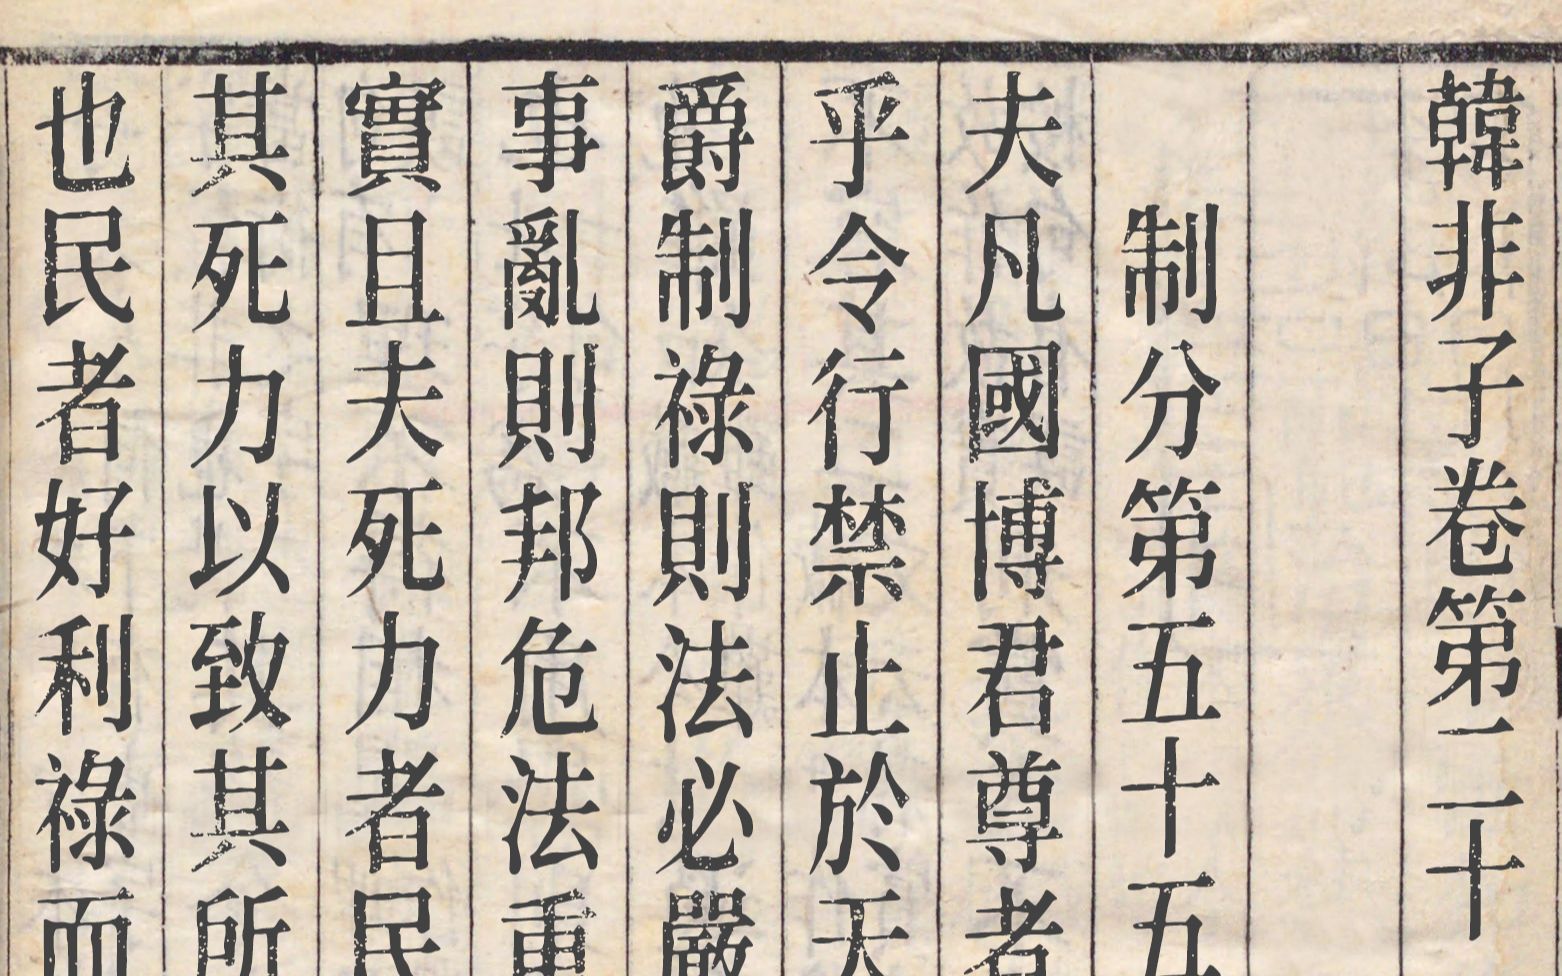 韓非子卷第二十
制分第五十五
夫凡國博君尊者
乎令行禁止於天
爵制祿則法必嚴
事亂則邦危法重
實且夫死力者民
其死力以致其所
也民者好利祿而